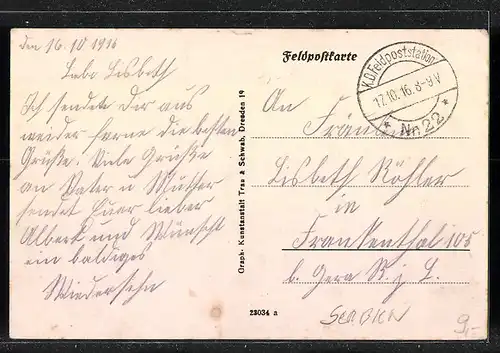 den 16.10 1916
Liebe Lisbeth
Ich sende dir aus
weider ferne die besten
Grüße. Viele Grüße
an Vater u Mutter
sendet Euer lieber
Albert und Wünscht
ein baldiges
Wiedersehn
Feldpostkarte
K.D.Feldpoststation
17.10.16.8-9V
* Nr. 22 *
An
Fräulein
Lisbeth Köhler
in
Frankenthal 105
b. Gera R. j. L.
Graph. Kunstanstalt Trau & Schwab, Dresden 19
23034 a
SERBIEN
9,-